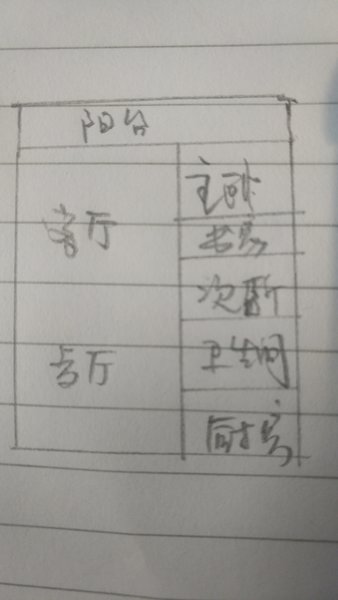 阳台
主卧
客厅
书房
次卧
卫生间
厨房